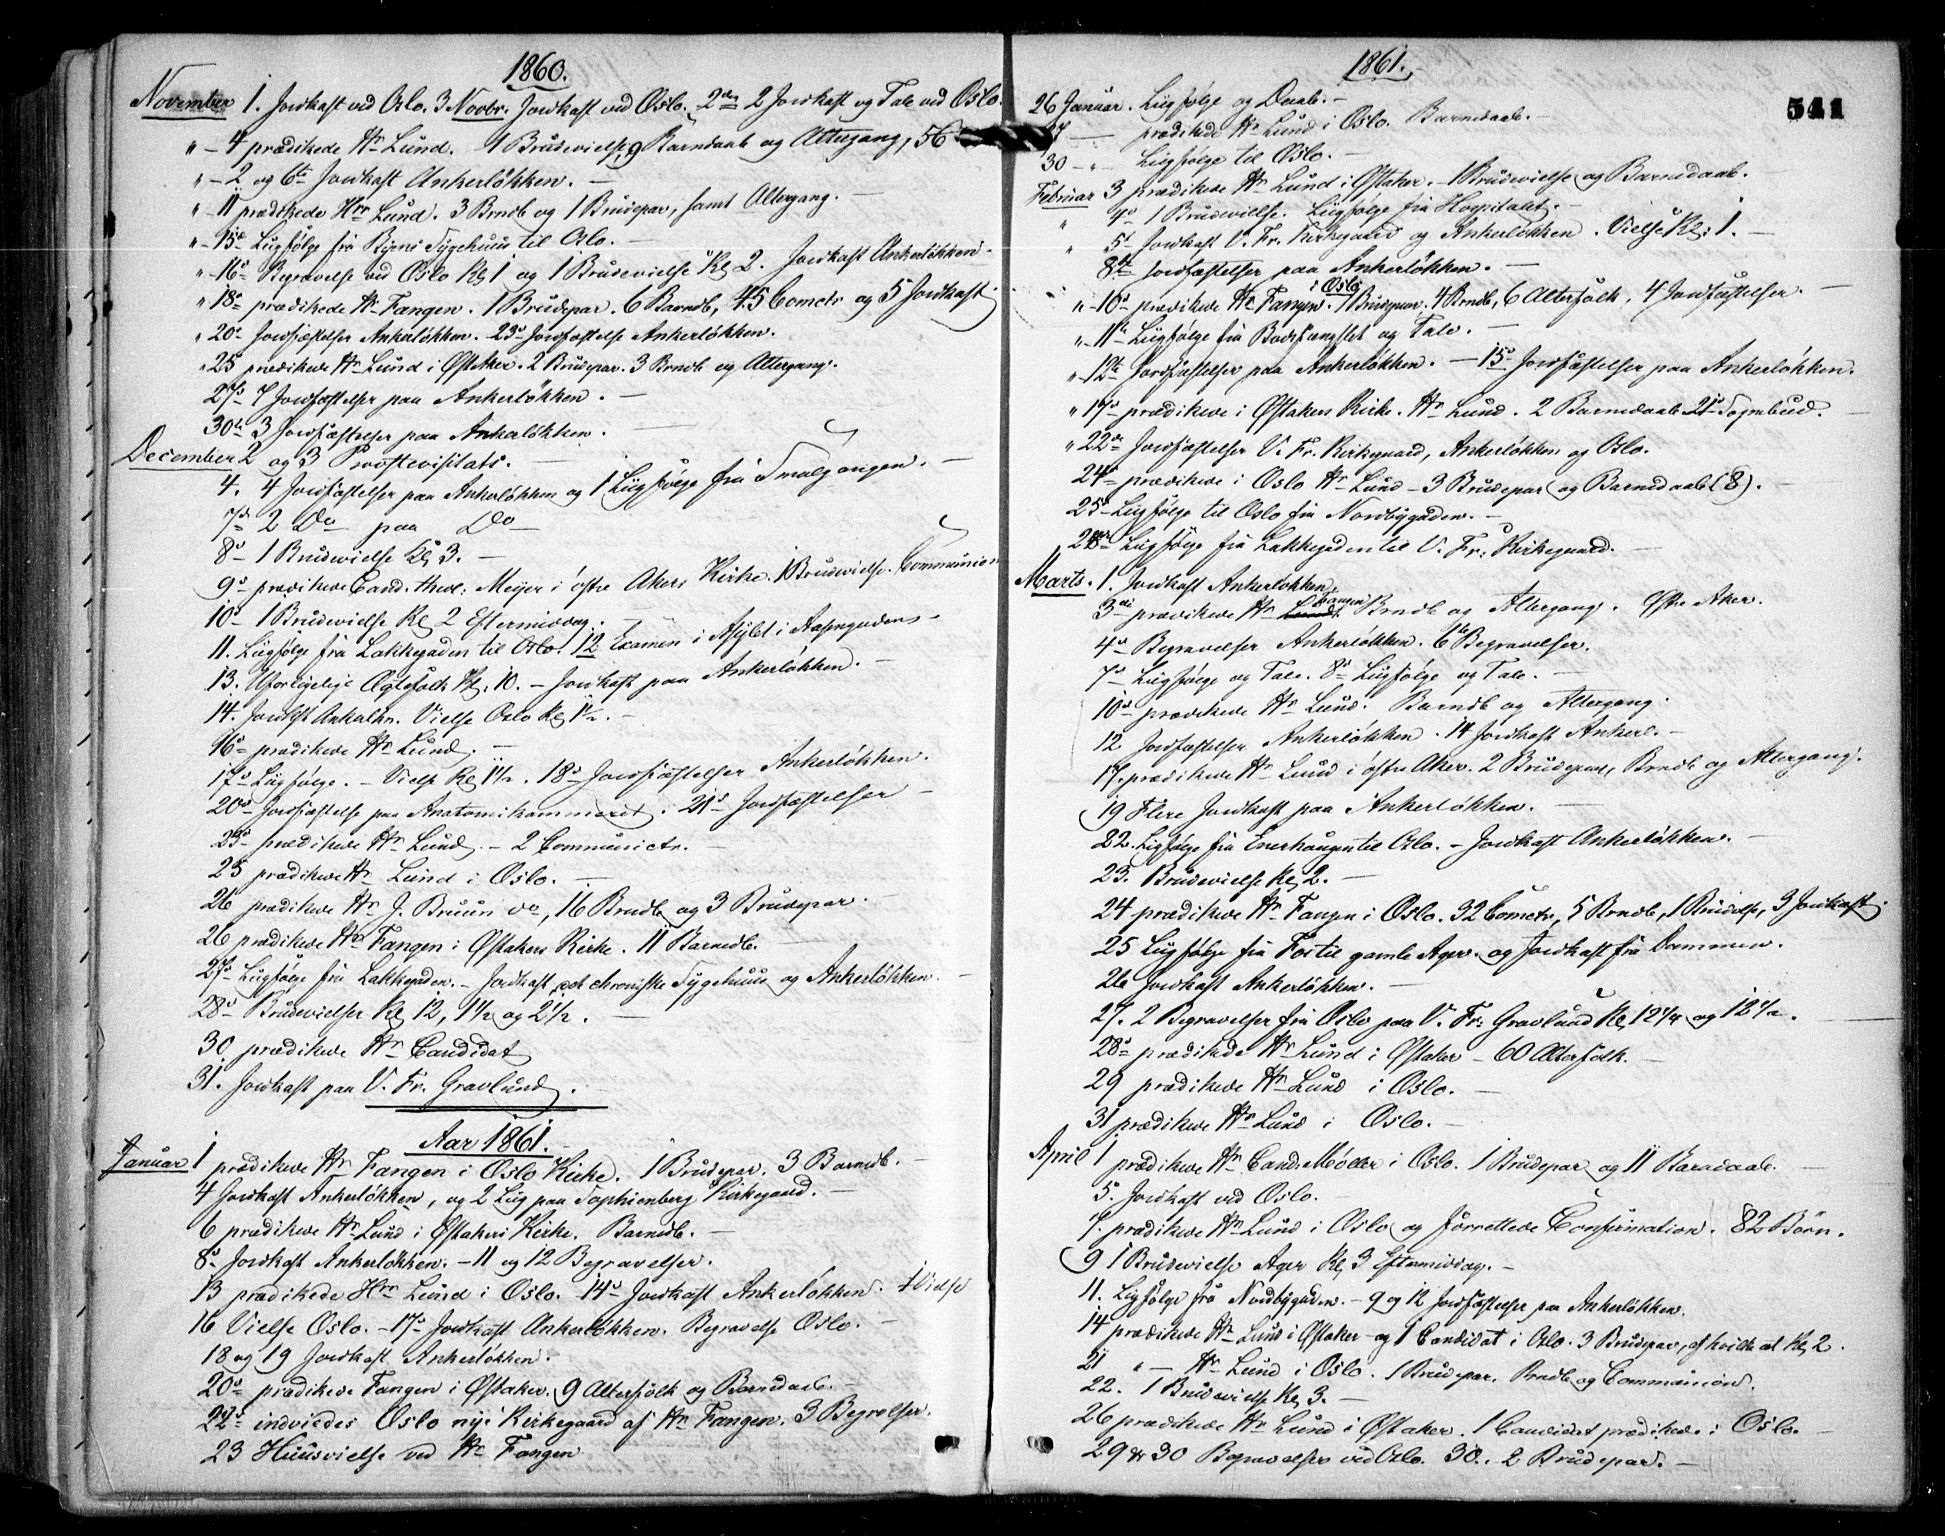 1860.
November 1. Jordkast ved Oslo. 3 Novbr. Jordkast ved Oslo. 2den 2 Jordkast og Tale ved Oslo.
" - 4 prædikede Hr Lund. 1 Brudevielse, 9 Barndaab og Altergang, 56
" - 2 og 6te Jordkast Ankerløkken. -
" - 11 prædikede Hr Lund. 3 Brndb og 1 Brudepar, samt Altergang.
" - 15de Liigfølge fra Byens Sygehuus til Oslo. -
" - 16de Begravelse ved Oslo Kl 1 og 1 Brudevielse Kl 2. Jordkast Ankerløkken -
" 18de prædikede Hr Fangen. 1 Brudepar. 6 Barndb, 45 Comctr og 5 Jordkast
" 20de Jordfæstelser Ankerløkken. 23de Jordfæstelse Ankerløkken.
" 25 prædikede Hr Lund i Østaker. 2 Brudepar. 3 Brndb og Altergang.
27de 7 Jordfæstelser paa Ankerløkken. -
30te 3 Jordfæstelser paa Ankerløkken. -
December 2 og 3 Provstevisitats. -
4. 4 Jordfæstelser paa Ankerløkken og 1 Liigfølge fra Smalgangen. -
7de 2 Do paa Do
8de 1 Brudevielse Kl 3. -
9de prædikede Cand. theol. Meijer i østre Akers Kirke. 1 Brudevielse. Communion
10de 1 Brudevielse Kl 2 Eftermiddag. -
11. Liigfølge fra Lakkegaden til Oslo. 12 Examen i Asylet i Aasengadens -
13. Uforligelige Ægtefolk Kl. 10. - Jordkast paa Ankerløkken. -
14. Jordkst Ankerløkn. Vielse Oslo Kl 1½. -
16de prædikede Hr Lund. -
17de Liigfølge. - Vielse Kl 1½. 18de Jordfæstelser Ankerløkken.
20de Jordfæstelse paa Anatomikammeret. 21de Jordfæstelser -
23de prædikede Hr Lund. - 2 Communictr. -
25 prædikede Hr Lund i Oslo. -
26 prædikede Hr J. Bruun do, 16 Brndb og 3 Brudepar. -
26 prædikede Hr Fangen i Østakers Kirke. 11 Barndb.
27de Liigfølge fra Lakkegaden. - Jordkast det chroniske Sygehuus og Ankerløkken. -
28de Brudevielser Kl 12, 1½ og 2½. -
30 prædikede Hr Candidat
31. Jordkast paa V. Fr. Gravlund.
Aar 1861.
Januar 1 prædikede Hr Fangen i Oslo Kirke. 1 Brudepar. 3 Barndb. -
4 Jordkast Ankerløkken, og 2 Liig paa Sophienberg Kirkegaard. -
6 prædikede Hr Lund i Østakers Kirke. Barndb. -
8de Jordkast Ankerløkken. - 11 og 12 Begravelser.
13 prædikede Hr Lund i Oslo. - 14de Jordkast Ankerløkken. 1 Vielse
16 Vielse Oslo. - 17de Jordkast Ankerløkken. Begravelse Oslo. -
18 og 19 Jordkast Ankerløkken.
20de prædikede Fangen i Østaker. 9 Alterfolk og Barnedaab. -
22de indviedes Oslo nye Kirkegaard af Hr Fangen. 3 Begrvlser.
23 Huusvielse ved Hr Fangen
1861.
541
26 Januar. Liigfølge og Daab. -
27 - prædikede Hr Lund i Oslo. Barnedaab. -
30 - " Liigfølge til Oslo. -
Februar 3 prædikede Hr Lund i Østaker. 1 Brudevielse og Barnedaab. -
" 4de 1 Brudevielse. Liigfølge fra Hospitalet. -
" 5te Jordkast V. Fr. Kirkegaard og Ankerløkken. Vielse Kl. 1. -
8de Jordfæstelser paa Ankerløkken. -
" - 10de prædikede Hr Fangen i Oslo. 1 Brudepar, 4 Brndb, 6 Alterfolk, 4 Jordfæstelser. -
" - 11te Liigfølge fra Bodsfængslet og Tale. -
" - 12te Jordfæstelser paa Ankerløkken. - 15de Jordfæstelser paa Ankerløkken.
" 17de prædikede i Østakers Kirke. Hr Lund. 2 Barnedaab. 21de Sognebud. -
" 22de Jordfæstelser V. Fr. Kirkegaard, Ankerløkken og Oslo.
24de prædikede i Oslo Hr Lund - 3 Brudepar og Barnedaab (8). -
25de Liigfølge til Oslo fra Nordbygaden. -
28de Liigfølge fra Lakkegaden til V. Fr. Kirkegaard. -
Marts. 1. Jordkast Ankerløkken.
3die prædikede Hr Fangen Brndb og Altergang. Østre Aker.
4de Begravelser Ankerløkken. 6te Begravelser.
7de Liigfølge og Tale. 8de Liigfølge og Tale. -
10de prædikede Hr Lund. Barndb og Altergang.
12 Jordfæstelser Ankerløkken. 14 Jordkast Ankerl. -
17. prædikede Hr Lund i østre Aker. 2 Brudepar, Brndb og Altergang.
19 Flere Jordkast paa Ankerløkken. -
22. Liigfølge fra Enerhaugen til Oslo. - Jordkast Ankerløkken. -
23. Brudevielse Kl 2. -
24 prædikede Hr Fangen i Oslo. 32 Comctr, 5 Brndb, 1 Brudvlse, 3 Jordkast.
25 Liigfølge fra Fos til gamle Ager og Jordkast fra Dammen.
26 Jordkast Ankerløkken. -
27. 2 Begravelser fra Oslo paa V. Fr. Gravlund Kl 12¼ og 12½. -
28de prædikede Hr Lund i Østaker - 60 Alterfolk. -
29 prædikede Hr Lund i Oslo. -
31 prædikede Hr Lund i Oslo. -
April 1 prædikede Hr Cand. Møller i Oslo. 1 Brudepar og 11 Barndaab. -
5. Jordkast ved Oslo.
7. prædikede Hr Lund i Oslo og forrettede Confirmation. 82 Børn.
9 1 Brudevielse Ager Kl 3 Eftermiddag. -
11. Liigfølge fra Nordbygaden. - 9 og 12 Jordfæstelser paa Ankerløkken.
14 prædikede Hr Lund i Østaker og 1 Candidat i Oslo. 3 Brudepar, af hvilke et Kl 2.
21 " - Hr Lund i Oslo. 1 Brudepar. Brndb og Communion.
22. 1 Brudevielse Kl 3. -
26 prædikede Hr Lund i Østaker. 1 Candidat prædikede i Oslo. -
29 og 30 Begravelser ved Oslo. 30. 2 Brudepar. -